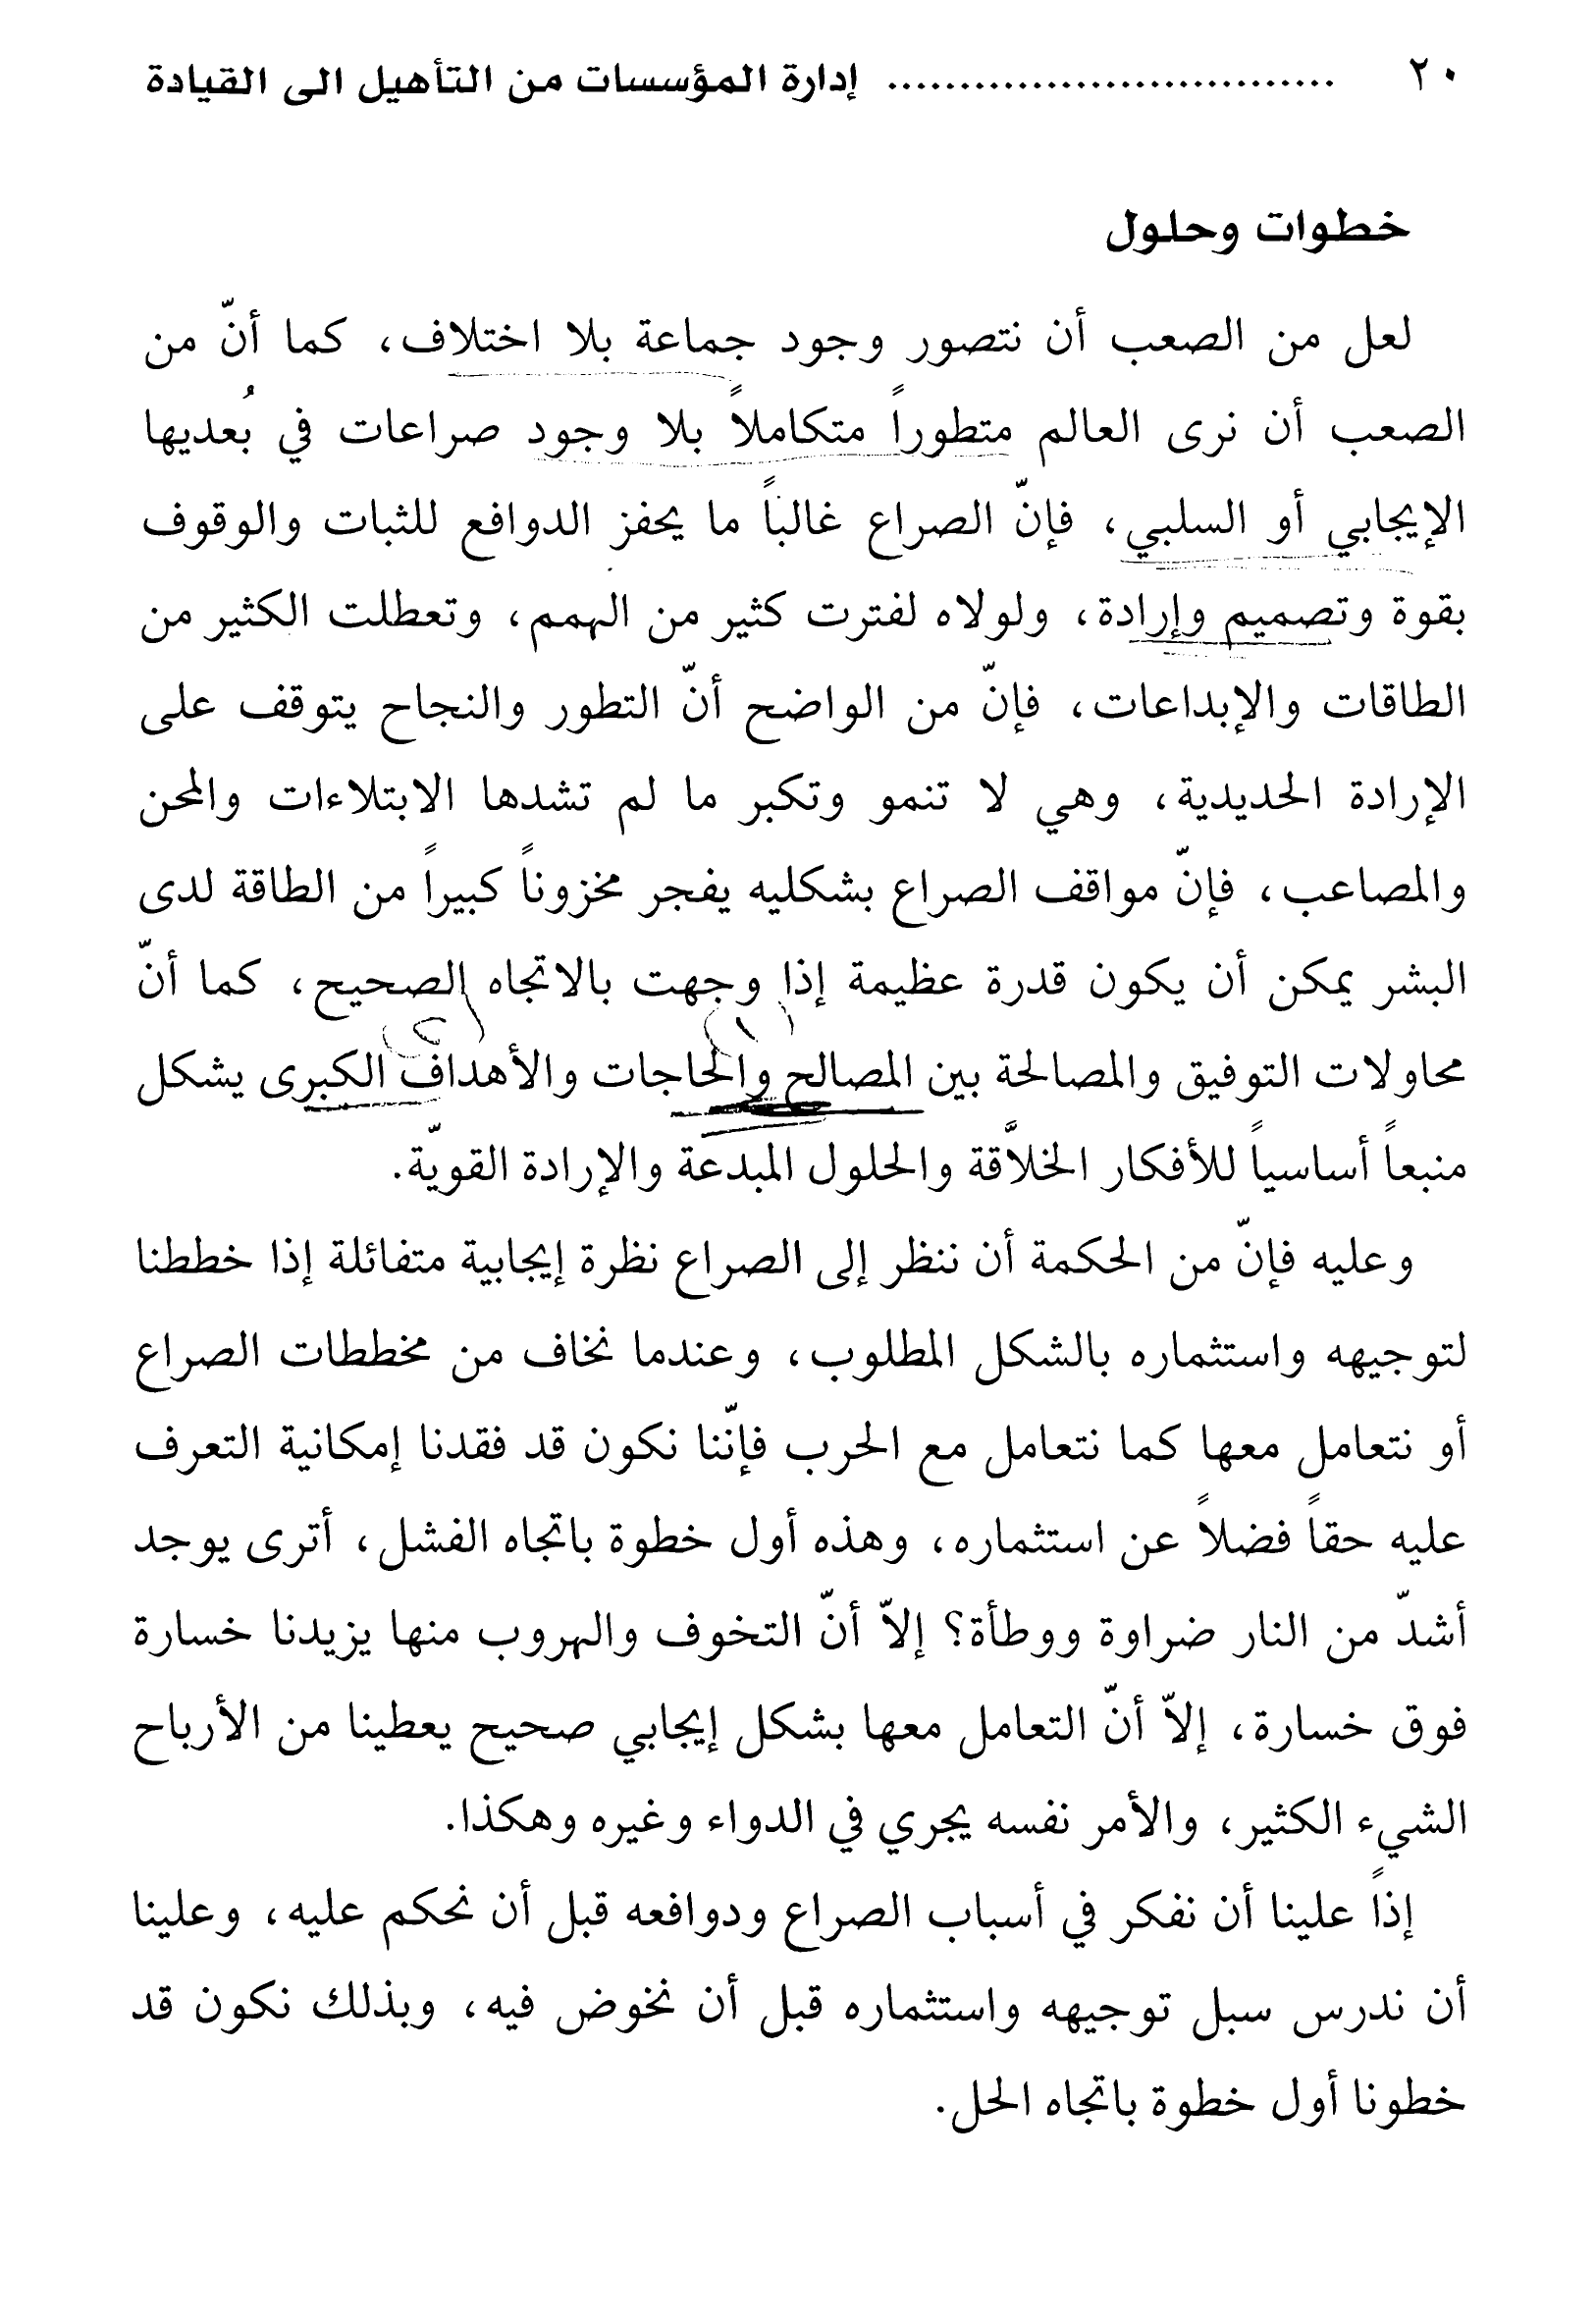 ٢٠ ............................... إدارة المؤسسات من التأهيل الى القيادة
خطوات وحلول
لعل من الصعب أن نتصور وجود جماعة بلا اختلاف، كما أنّ من
الصعب أن نرى العالم متطوراً متكاملاً بلا وجود صراعات في بُعديها
الإيجابي أو السلبي، فإنّ الصراع غالباً ما يحفز الدوافع للثبات والوقوف
بقوة وتصميم وإرادة، ولولاه لفترت كثير من الهمم، وتعطلت الكثير من
الطاقات والإبداعات، فإنّ من الواضح أنّ التطور والنجاح يتوقف على
الإرادة الحديدية، وهي لا تنمو وتكبر ما لم تشدها الابتلاءات والمحن
والمصاعب، فإنّ مواقف الصراع بشكليه يفجر مخزوناً كبيراً من الطاقة لدى
البشر يمكن أن يكون قدرة عظيمة إذا وجهت بالاتجاه الصحيح، كما أنّ
(١) (٢)
محاولات التوفيق والمصالحة بين المصالح والحاجات والأهداف الكبرى يشكل
منبعاً أساسياً للأفكار الخلاَّقة والحلول المبدعة والإرادة القويّة.
وعليه فإنّ من الحكمة أن ننظر إلى الصراع نظرة إيجابية متفائلة إذا خططنا
لتوجيهه واستثماره بالشكل المطلوب، وعندما نخاف من مخططات الصراع
أو نتعامل معها كما نتعامل مع الحرب فإنّنا نكون قد فقدنا إمكانية التعرف
عليه حقاً فضلاً عن استثماره، وهذه أول خطوة باتجاه الفشل، أترى يوجد
أشدّ من النار ضراوة ووطأة؟ إلاّ أنّ التخوف والهروب منها يزيدنا خسارة
فوق خسارة، إلاّ أنّ التعامل معها بشكل إيجابي صحيح يعطينا من الأرباح
الشيء الكثير، والأمر نفسه يجري في الدواء وغيره وهكذا.
إذاً علينا أن نفكر في أسباب الصراع ودوافعه قبل أن نحكم عليه، وعلينا
أن ندرس سبل توجيهه واستثماره قبل أن نخوض فيه، وبذلك نكون قد
خطونا أول خطوة باتجاه الحل.